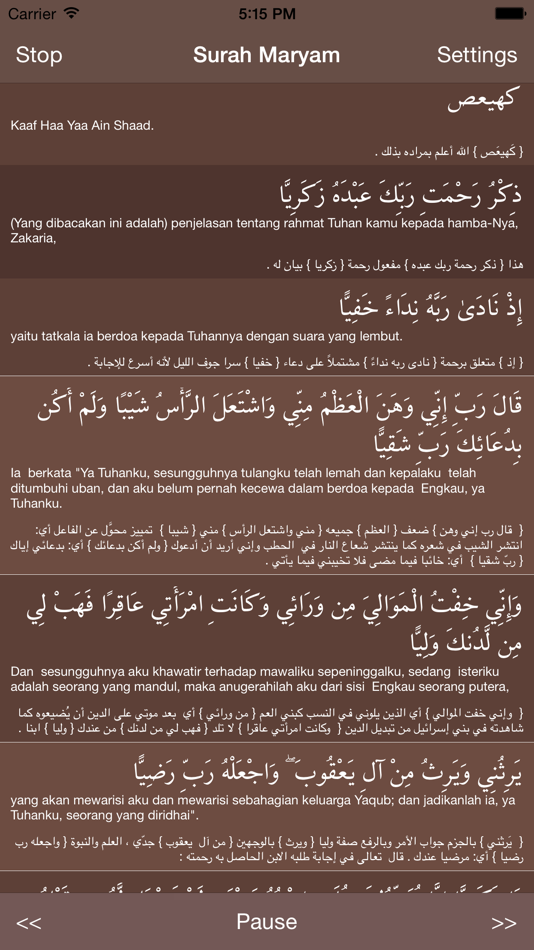 Carrier 5:15 PM
Stop Surah Maryam Settings
كهيعص
Kaaf Haa Yaa Ain Shaad.
{ كهيعص } الله أعلم بمراده بذلك .
ذِكْرُ رَحْمَتِ رَبِّكَ عَبْدَهُ زَكَرِيَّا
(Yang dibacakan ini adalah) penjelasan tentang rahmat Tuhan kamu kepada hamba-Nya,
Zakaria,
هذا { ذكر رحمة ربك عبده } مفعول رحمة { زكريا } بيان له .
إِذْ نَادَىٰ رَبَّهُ نِدَاءً خَفِيًّا
yaitu tatkala ia berdoa kepada Tuhannya dengan suara yang lembut.
{ إذ } متعلق برحمة { نادى ربه نداءً } مشتملاً على دعاء { خفيا } سرا جوف الليل لأنه أسرع للإجابة .
قَالَ رَبِّ إِنِّي وَهَنَ الْعَظْمُ مِنِّي وَاشْتَعَلَ الرَّأْسُ شَيْبًا وَلَمْ أَكُن
بِدُعَائِكَ رَبِّ شَقِيًّا
Ia berkata "Ya Tuhanku, sesungguhnya tulangku telah lemah dan kepalaku telah
ditumbuhi uban, dan aku belum pernah kecewa dalam berdoa kepada Engkau, ya
Tuhanku.
{ قال رب إني وهن } ضعف { العظم } جميعه { مني واشتعل الرأس } مني { شيبا } تمييز محوَّل عن الفاعل أي:
انتشر الشيب في شعره كما ينتشر شعاع النار في الحطب وإني أريد أن أدعوك { ولم أكن بدعائك } أي: بدعائي إياك
{ ربّ شقيا } أي: خائبا فيما مضى فلا تخيبني فيما يأتي .
وَإِنِّي خِفْتُ الْمَوَالِيَ مِن وَرَائِي وَكَانَتِ امْرَأَتِي عَاقِرًا فَهَبْ لِي
مِن لَّدُنكَ وَلِيًّا
Dan sesungguhnya aku khawatir terhadap mawaliku sepeninggalku, sedang isteriku
adalah seorang yang mandul, maka anugerahilah aku dari sisi Engkau seorang putera,
{ وإني خفت الموالي } أي الذين يلوني في النسب كبني العم { من ورائي } أي بعد موتي على الدين أن يُضيعوه كما
شاهدته في بني إسرائيل من تبديل الدين { وكانت امرأتي عاقرا } لا تلد { فهب لي من لدنك } من عندك { وليا } ابنا .
يَرِثُنِي وَيَرِثُ مِنْ آلِ يَعْقُوبَ ۖ وَاجْعَلْهُ رَبِّ رَضِيًّا
yang akan mewarisi aku dan mewarisi sebahagian keluarga Yaqub; dan jadikanlah ia, ya
Tuhanku, seorang yang diridhai".
{ يَرثني } بالجزم جواب الأمر وبالرفع صفة وليا { ويرث } بالوجهين { من آل يعقوب } جدّي ، العلم والنبوة { واجعله رب
رضيا } أي: مرضيا عندك . قال تعالى في إجابة طلبه الابن الحاصل به رحمته :
<< Pause >>